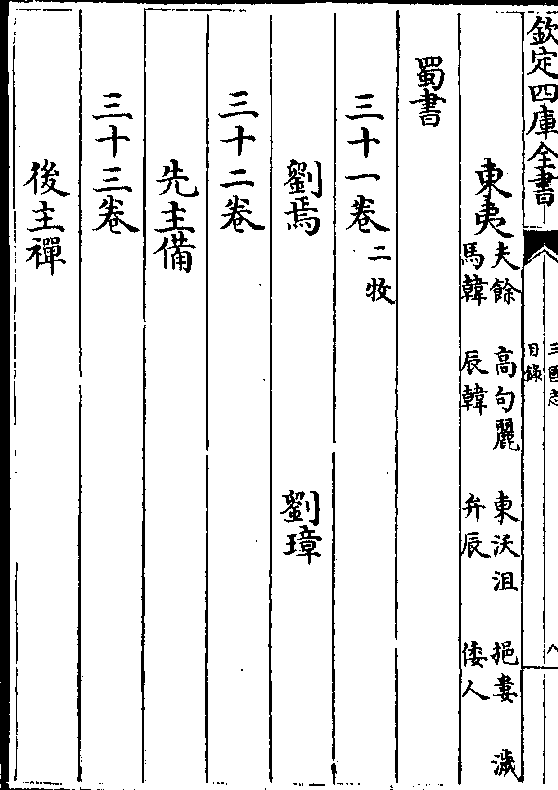 欽定四庫全書
三國志
目錄
八
東夷 夫餘 高句麗 東沃沮 挹婁 濊
馬韓 辰韓 弁辰 倭人
蜀書
三十一卷 二牧
劉焉 劉璋
三十二卷
先主備
三十三卷
後主禪